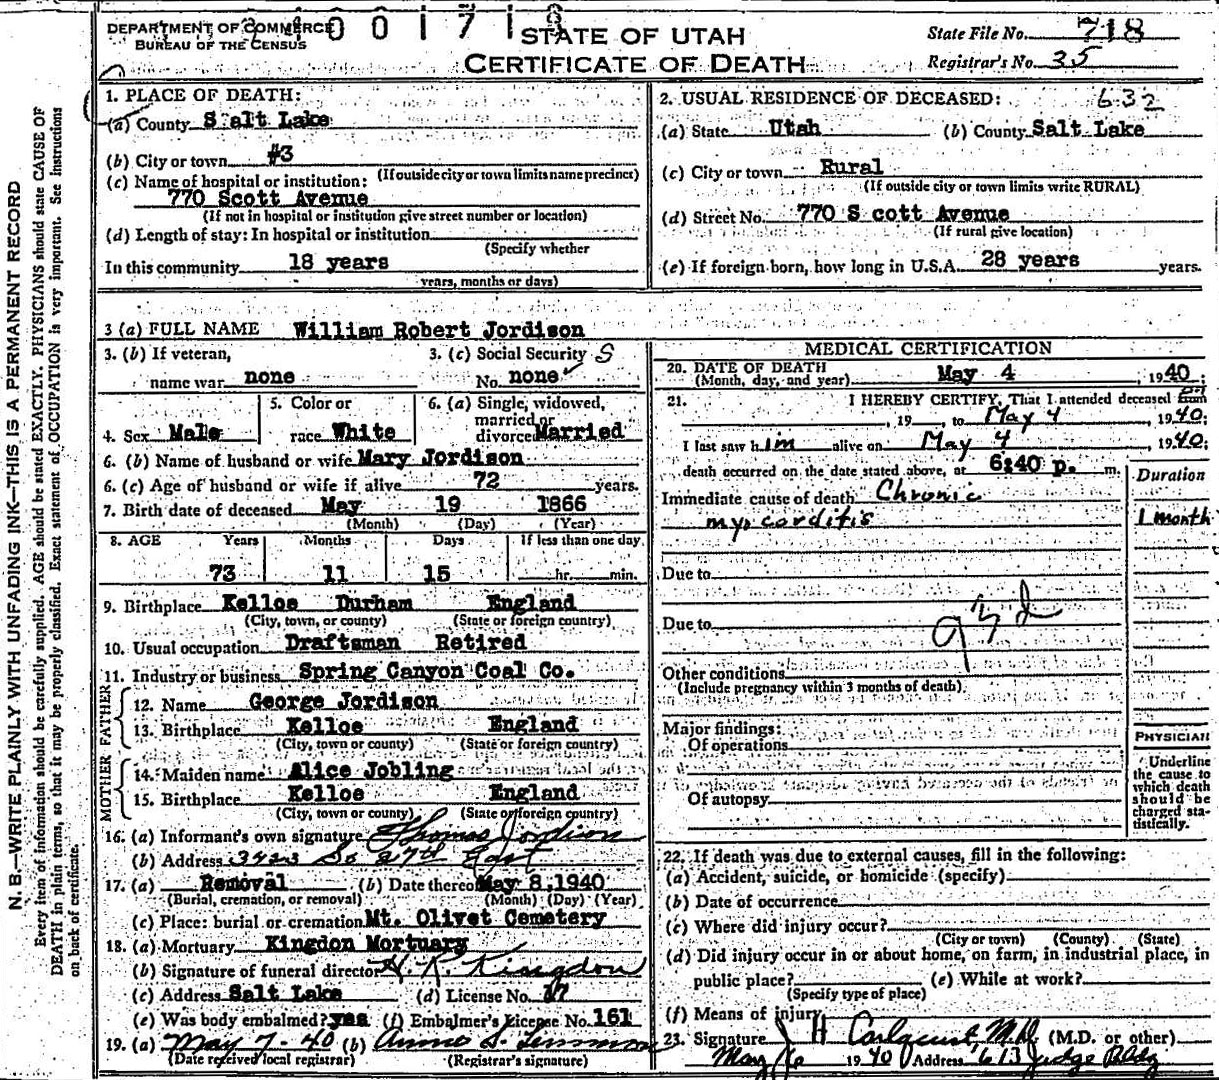 DEPARTMENT OF COMMERCE
BUREAU OF THE CENSUS
STATE OF UTAH
CERTIFICATE OF DEATH
State File No. 718
Registrar's No. 35
1. PLACE OF DEATH:
(a) County Salt Lake
(b) City or town #3
(If outside city or town limits name precinct)
(c) Name of hospital or institution:
770 Scott Avenue
(If not in hospital or institution give street number or location)
(d) Length of stay: In hospital or institution
(Specify whether
In this community 18 years
years, months or days)
2. USUAL RESIDENCE OF DECEASED: 632
(a) State Utah (b) County Salt Lake
(c) City or town Rural
(If outside city or town limits write RURAL)
(d) Street No. 770 S cott Avenue
(If rural give location)
(e) If foreign born, how long in U.S.A. 28 years years.
3 (a) FULL NAME William Robert Jordison
3. (b) If veteran,
name war none
3. (c) Social Security S
No. none
4. Sex Male
5. Color or
race White
6. (a) Single, widowed,
married or
divorced Married
6. (b) Name of husband or wife Mary Jordison
6. (c) Age of husband or wife if alive 72 years.
7. Birth date of deceased May 19 1866
(Month) (Day) (Year)
8. AGE Years Months Days If less than one day
73 11 15 hr. min.
9. Birthplace Kelloe Durham England
(City, town, or county) (State or foreign country)
10. Usual occupation Draftsman Retired
11. Industry or business Spring Canyon Coal Co.
FATHER
12. Name George Jordison
13. Birthplace Kelloe England
(City, town or county) (State or foreign country)
MOTHER
14. Maiden name Alice Jobling
15. Birthplace Kelloe England
(City, town or county) (State or foreign country)
16. (a) Informant's own signature Thomas Jordison
(b) Address 3423 So 27th East
17. (a) Removal (b) Date thereof May 8, 1940
(Burial, cremation, or removal) (Month) (Day) (Year)
(c) Place: burial or cremation Mt. Olivet Cemetery
18. (a) Mortuary Kingdon Mortuary
(b) Signature of funeral director H. R. Kingdon
(c) Address Salt Lake (d) License No. 17
(e) Was body embalmed? yes (f) Embalmer's License No. 161
19. (a) May 7-40 (b) Annie S.
(Date received local registrar) (Registrar's signature)
MEDICAL CERTIFICATION
20. DATE OF DEATH
(Month, day, and year) May 4, 1940
21. I HEREBY CERTIFY, That I attended deceased from
, 19 , to May 4 1940;
I last saw him alive on May 4 1940;
death occurred on the date stated above, at 6:40 p. m.
Duration
Immediate cause of death Chronic
myocarditis 1 month
Due to
Due to
Other conditions
(Include pregnancy within 3 months of death)
Major findings:
Of operations
Of autopsy
PHYSICIAN
Underline
the cause to
which death
should be
charged sta-
tistically.
22. If death was due to external causes, fill in the following:
(a) Accident, suicide, or homicide (specify)
(b) Date of occurrence
(c) Where did injury occur?
(City or town) (County) (State)
(d) Did injury occur in or about home, on farm, in industrial place, in
public place? (e) While at work?
(Specify type of place)
(f) Means of injury
23. Signature J H Carlquist, M.D. (M.D. or other)
May 1940 Address 613 Judge Bldg
N. B.—WRITE PLAINLY WITH UNFADING INK—THIS IS A PERMANENT RECORD
Every item of information should be carefully supplied. AGE should be stated EXACTLY. PHYSICIANS should state CAUSE OF
DEATH in plain terms, so that it may be properly classified. Exact statement of OCCUPATION is very important. See Instructions
on back of certificate.